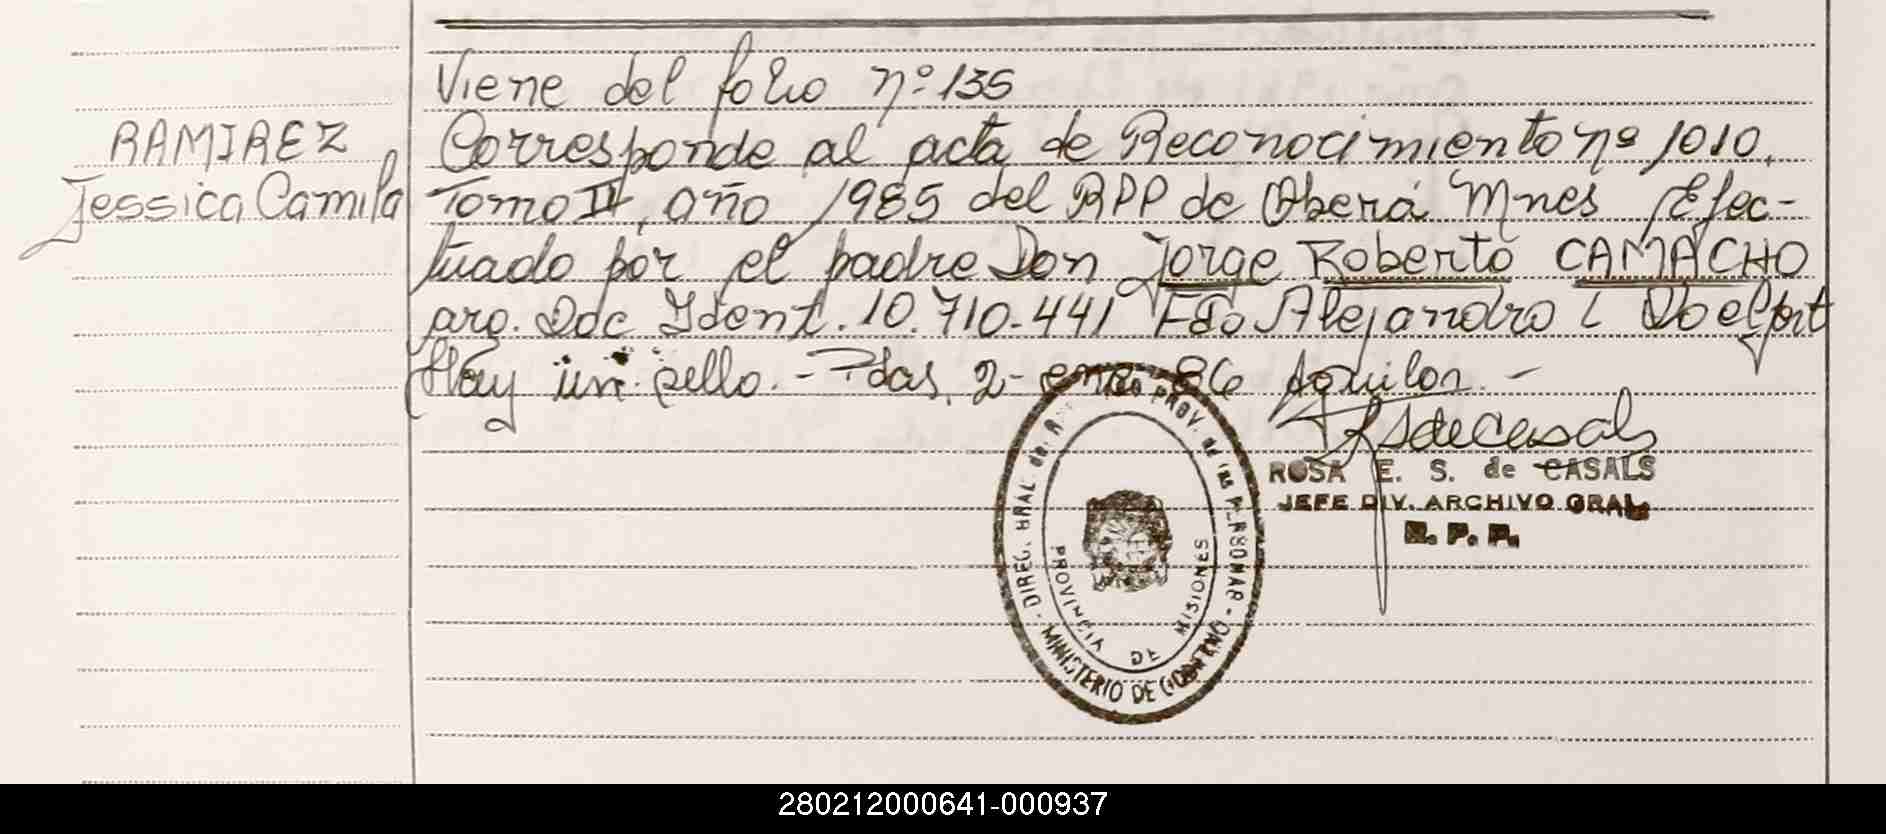 Viene del folio nº 135
RAMIREZ
Jessica Camila
Corresponde al acta de Reconocimiento nº 1010,
Tomo IV, año 1985 del RPP de Oberá Mnes Efec-
tuado por el padre Don Jorge Roberto CAMACHO
arg. Doc Ident. 10.710.441 Fdo Alejandro L
Hay un sello. - Pdas, 2- ene- 86 Aguilar. -
RSdeCasals
ROSA E. S. de CASALS
JEFE DIV. ARCHIVO GRAL
R. P. P.
DIREC. GRAL. de PROV. de las PERSONAS -
MINISTERIO DE GOBIERNO
PROVINCIA DE MISIONES
280212000641-000937